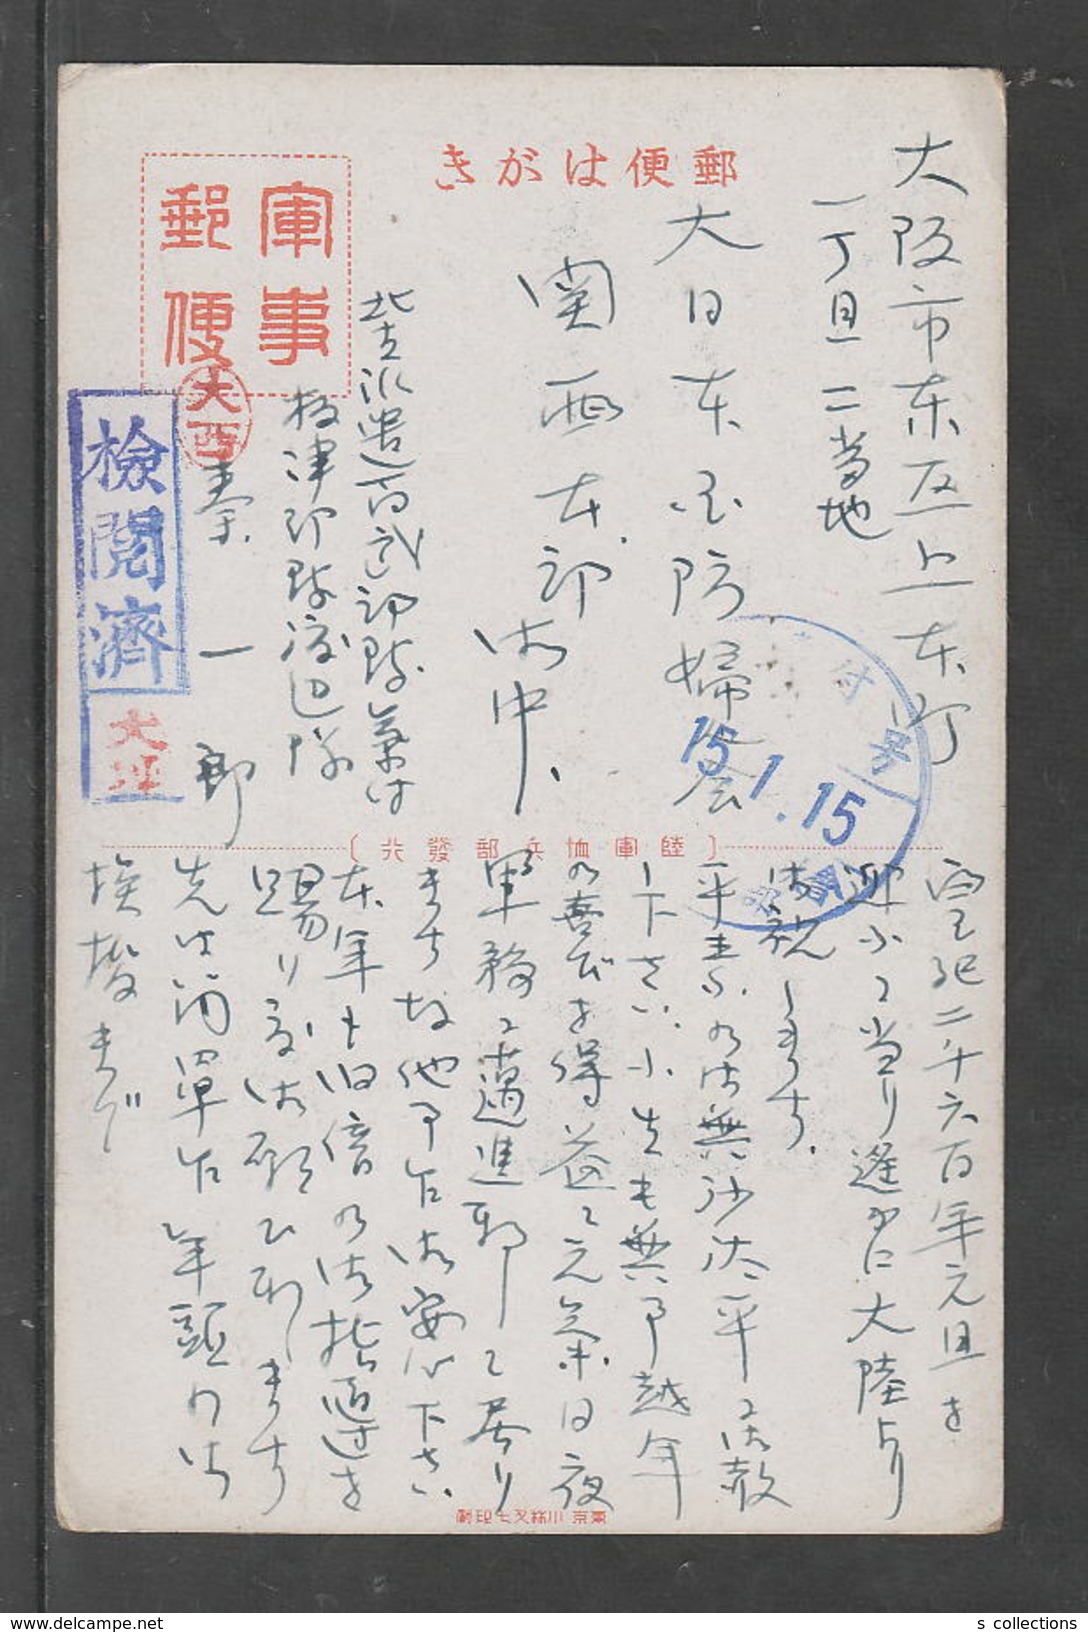 郵便はがき
軍事
郵便
大西
檢閲濟
大西
大阪市東区上本町
一丁目二当地
大日本国防婦人会
関西本部御中、
北支派遣百武部隊気付
板津部隊渡辺隊
秦一郎
受付
15.1.15
〔陸軍恤兵部發行〕
皇紀二千六百年元旦を
迎ふるに当り遥かに大陸より
御祝します.
平素の御無沙汰平に御赦
し下さい、小生も無事越年
の喜びを得益々元気日夜
軍務に邁進致して居り
ます故他事乍御安心下さい
本年も旧倍の御指導を
賜り度御願ひ致します
先は簡単乍年頭の御
挨拶まで
東京 小林又七印刷
s collections